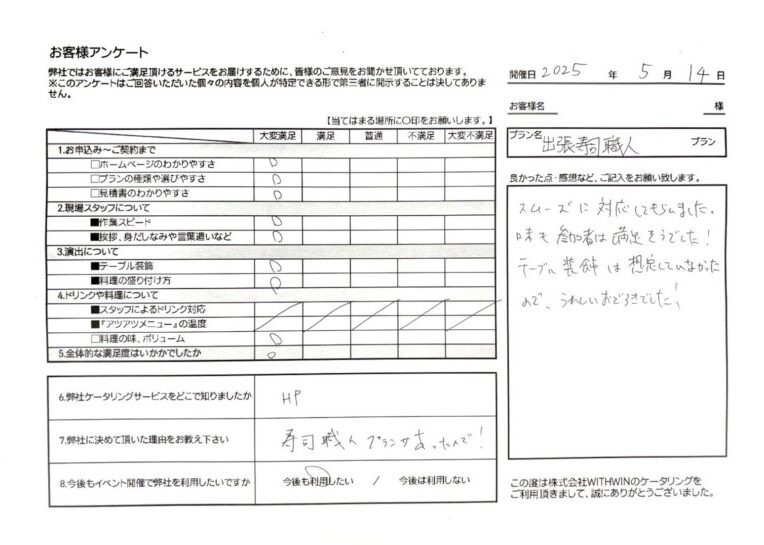 お客様アンケート
弊社ではお客様にご満足頂けるサービスをお届けするために、皆様のご意見をお聞かせ頂いております。
※このアンケートはご回答いただいた個々の内容を個人が特定できる形で第三者に開示することは決してありま
せん。
開催日 2025 年 5 月 14 日
お客様名 様
プラン名 出張寿司職人 プラン
【当てはまる場所に〇印をお願いします。】
大変満足 満足 普通 不満足 大変不満足
1.お申込み～ご契約まで
□ホームページのわかりやすさ ○
□プランの種類や選びやすさ ○
□見積書のわかりやすさ ○
2.現場スタッフについて
■作業スピード ○
■挨拶、身だしなみや言葉遣いなど ○
3.演出について
■テーブル装飾 ○
■料理の盛り付け方 ○
4.ドリンクや料理について
■スタッフによるドリンク対応
■『アツアツメニュー』の温度
□料理の味、ボリューム ○
5.全体的な満足度はいかがでしたか ○
6.弊社ケータリングサービスをどこで知りましたか HP
7.弊社に決めて頂いた理由をお教え下さい 寿司職人プランがあったんで！
8.今後もイベント開催で弊社を利用したいですか 今後も利用したい / 今後は利用しない
良かった点・感想など、ご記入をお願い致します。
スムーズに対応してもらいました。
味も参加者は満足そうでした！
テーブル装飾は想定していなかった
ので、うれしいおどろきでした！
この度は株式会社WITHWINのケータリングを
ご利用頂きまして、誠にありがとうございました。